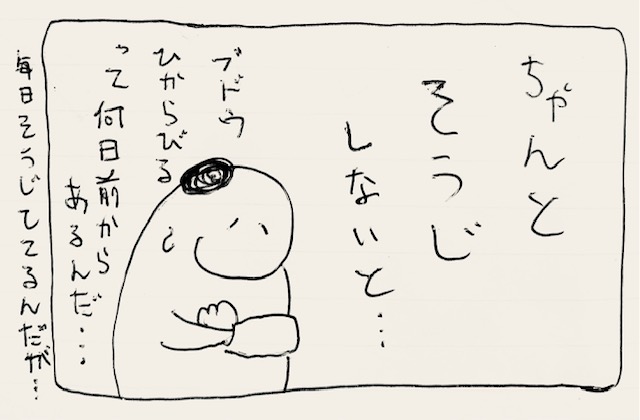 ちゃんと
そうじ
しないと…
ブドウ
ひからびる
って何日前から
あるんだ…。
毎日そうじしてるんだが…